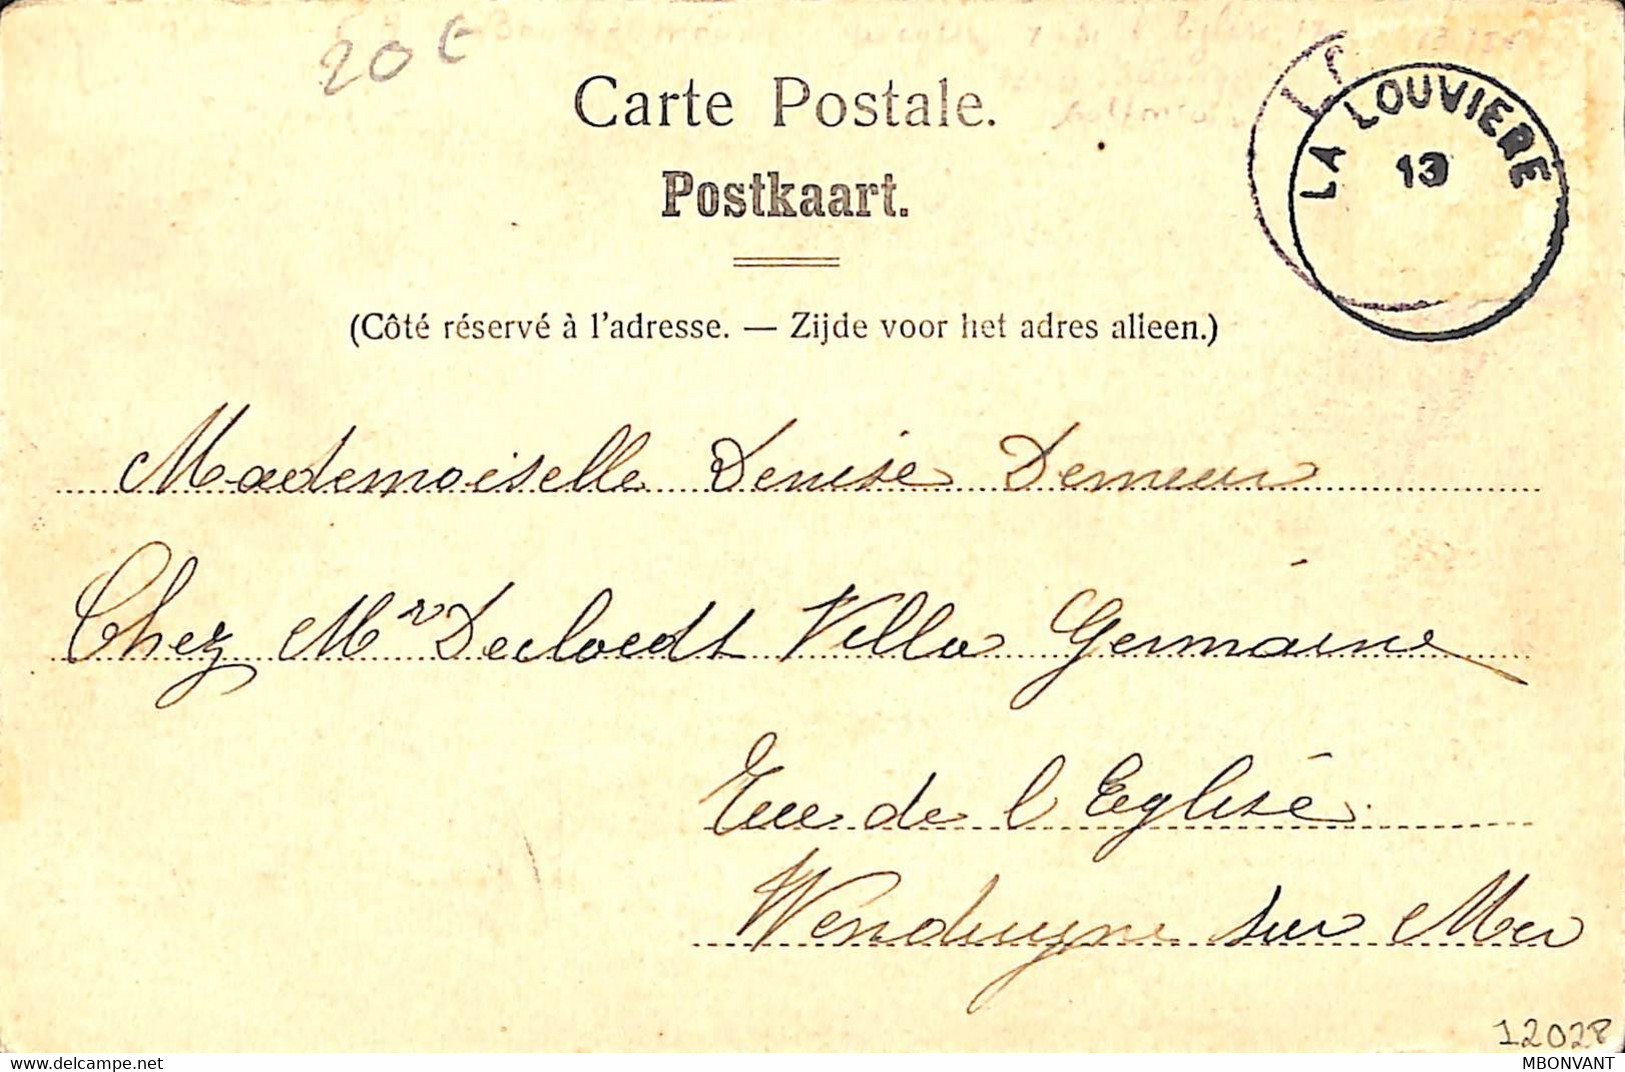 20 €
Carte Postale.
Postkaart.
LA LOUVIERE
13
(Côté réservé à l'adresse. — Zijde voor het adres alleen.)
Mademoiselle Denise Demeur
Chez Mr Decloedt Villa Germaine
Rue de l'Eglise
Wenduyne sur Mer
12028
https://www.delcampe.net
MBONVANT